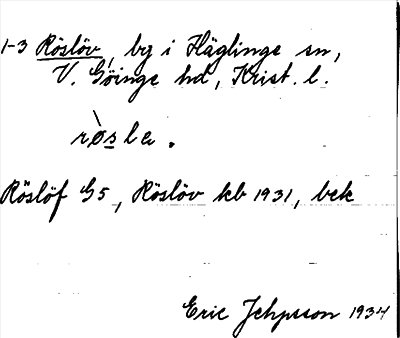 1-3 Röslöv, by i Häglinge sn,
V. Göinge hd, Krist. l.
ròsla.
Röslöf G5, Röslöv kb 1931, bek
Eric Jehpsson 1934